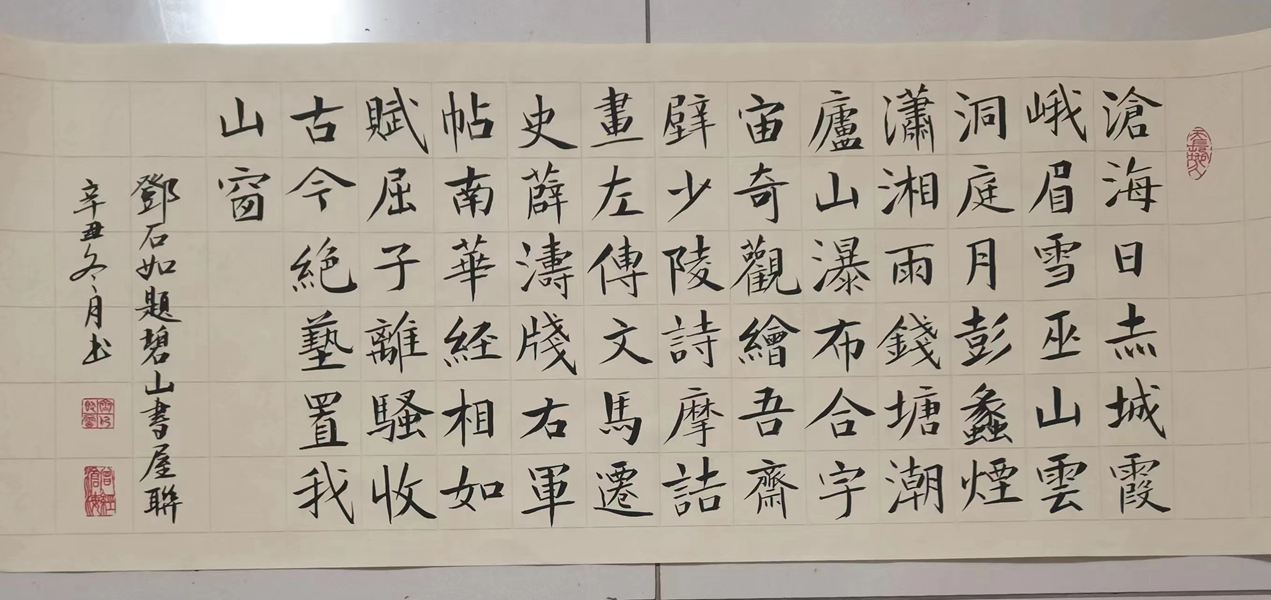 滄海日赤城霞
峨眉雪巫山雲
洞庭月彭蠡煙
瀟湘雨錢塘潮
廬山瀑布合宇
宙奇觀繪吾齋
壁少陵詩摩詰
畫左傳文馬遷
史薛濤牋右軍
帖南華経相如
賦屈子離騷收
古今絕藝置我
山窗
鄧石如題碧山書屋聯
辛丑冬月书